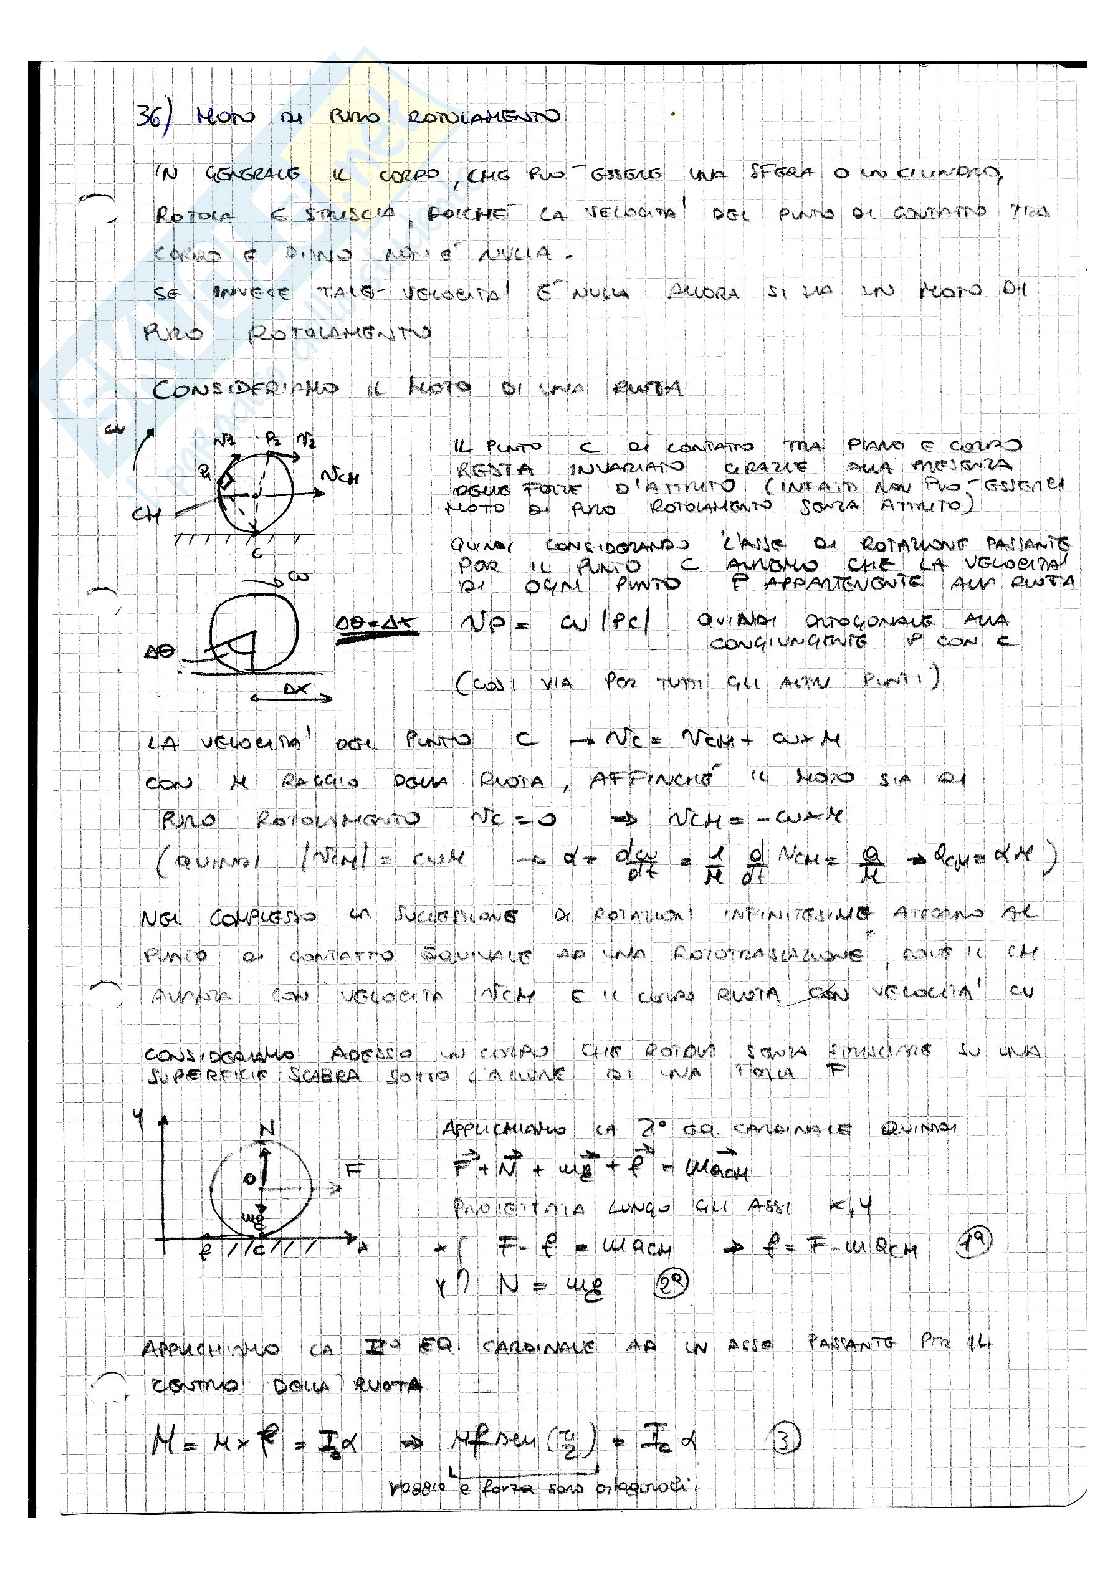 36) MOTO DI PURO ROTOLAMENTO
IN GENERALE IL CORPO, CHE PUO' ESSERE UNA SFERA O UN CILINDRO,
ROTOLA E STRISCIA, POICHE' LA VELOCITA' DEL PUNTO DI CONTATTO TRA
CORPO E PIANO NON E' NULLA.
SE INVECE TALE VELOCITA' E' NULLA ALLORA SI HA UN MOTO DI
PURO ROTOLAMENTO
CONSIDERIAMO IL MOTO DI UNA RUOTA
ω v1 P2 v2
P1 vCM
CM
C
IL PUNTO C DI CONTATTO TRA PIANO E CORPO
RESTA INVARIATO GRAZIE ALLA PRESENZA
DELLE FORZE D'ATTRITO (INFATTI NON PUO' ESSERCI
MOTO DI PURO ROTOLAMENTO SENZA ATTRITO)
QUINDI CONSIDERANDO L'ASSE DI ROTAZIONE PASSANTE
PER IL PUNTO C AVREMO CHE LA VELOCITA'
DI OGNI PUNTO P APPARTENENTE ALLA RUOTA
ω
Δθ = Δx
Δθ
Δx
vP = ω |PC| QUINDI ORTOGONALE ALLA
CONGIUNGENTE P CON C
(COSI VIA PER TUTTI GLI ALTRI PUNTI)
LA VELOCITA' DEL PUNTO C → vC = vCM + ω×r
CON r RAGGIO DELLA RUOTA, AFFINCHE' IL MOTO SIA DI
PURO ROTOLAMENTO vC = 0 ⇒ vCM = -ω×r
(QUINDI |vCM| = ωr → α = dω/dt = 1/r d/dt vCM = a/r → aCM = αr)
NEL COMPLESSO LA SUCCESSIONE DI ROTAZIONI INFINITESIME ATTORNO AL
PUNTO DI CONTATTO EQUIVALE AD UNA ROTOTRASLAZIONE, DOVE IL CM
AVANZA CON VELOCITA' vCM E IL CORPO RUOTA CON VELOCITA' ω
CONSIDERIAMO ADESSO UN CORPO CHE ROTOLI SENZA STRISCIARE SU UNA
SUPERFICIE SCABRA SOTTO L'AZIONE DI UNA FORZA F
y N
O F
mg
f C
APPLICHIAMO LA 2° EQ CARDINALE QUINDI
F + N + mg + f = maCM
PROIETTATA LUNGO GLI ASSI x, y
x) F - f = maCM ⇒ f = F - maCM (1a)
y) N = mg (2a)
APPLICHIAMO LA II° EQ CARDINALE AD UN ASSE PASSANTE PER IL
CENTRO DELLA RUOTA
M = r × f = Icα ⇒ rf sen(π/2) = Icα (3)
raggio e forza sono ortogonali